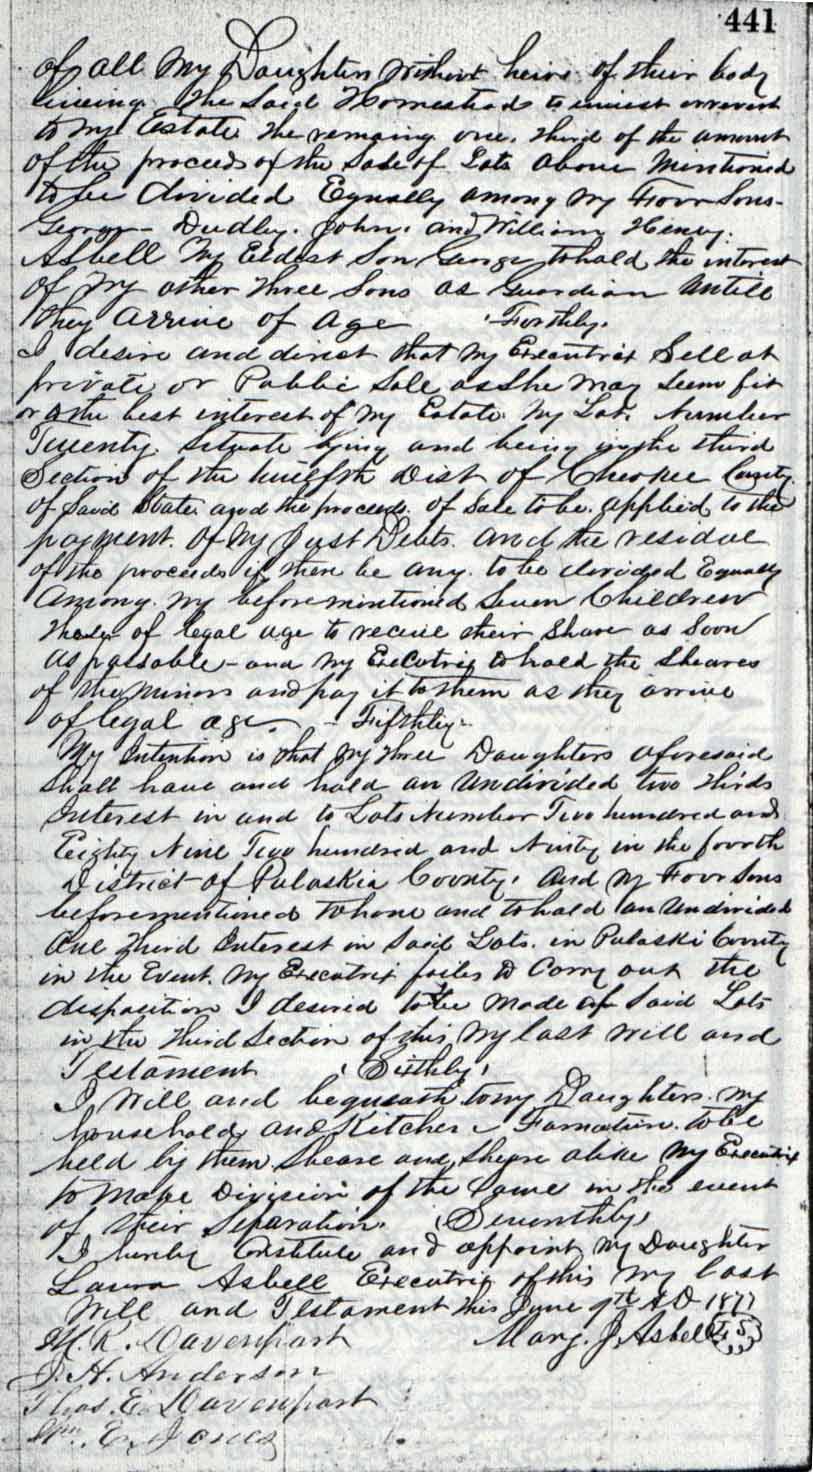 441
of all My Daughters without heirs of their body
living. The Said Homestead to invest or revert
to my Estate the remaing one. third of the amount
of the proceeds of the Sale of Lots above Mentioned
to be divided Equally among my Four Sons-
George- Dudley. John. and William Henry.
Asbell My Eldest Son George to hold the interest
of my other three Sons as Guardian Untill
they arrive of age Forthly.
I desire and direct that my Executrix Sell at
private or Public Sale as She may Seem fit
or the best interest of my Estate. My Lot. Number
Twenty. Situate lying and being in the third
Section of the twelfth Dist of Cherokee County.
of Said State and the proceeds. of Sale to be. applied to the
payment. of My Just Debts. and the residue
of the proceeds if there be any. to be divided Equally
among. my beforementioned Seven Children
of legal age to receive their Share as Soon
as possable - and my Executrix to hold the Sheares
of the minors and pay it to them as they arrive
of legal age. - Fifthly-
My Intention is that my three Daughters aforesaid
Shall have and hold an Undivided two thirds
Interest in and to Lots Number Two hundred and
Eighty Nine Two hundred and Ninty in the fourth
District of Pulaskia County. And my Four Sons
beforementioned to have and to hold an Undivided
One third Interest in Said Lots. in Pulaski County
in the Event. My Executrix failes to Carry out the
disposition I desired to be made of Said Lots
in the third Section of this, My last Will and
Testament Sixthly.
I Will and bequeath to my Daughters. my
household and Kitchen to be
held by them Sheare and Sheare alike My Executrix
to make Division of the Same in the event
of their Separation. Seventhly
I hereby Constitute and appoint my Daughter
Laura Asbell Executrix of this my last
Will and Testament this June 9th A D 1877
M. K. Davenport Marg. J. Asbell L S
J. H. Anderson
Thos. E. Davenport
Wm. E. Jones